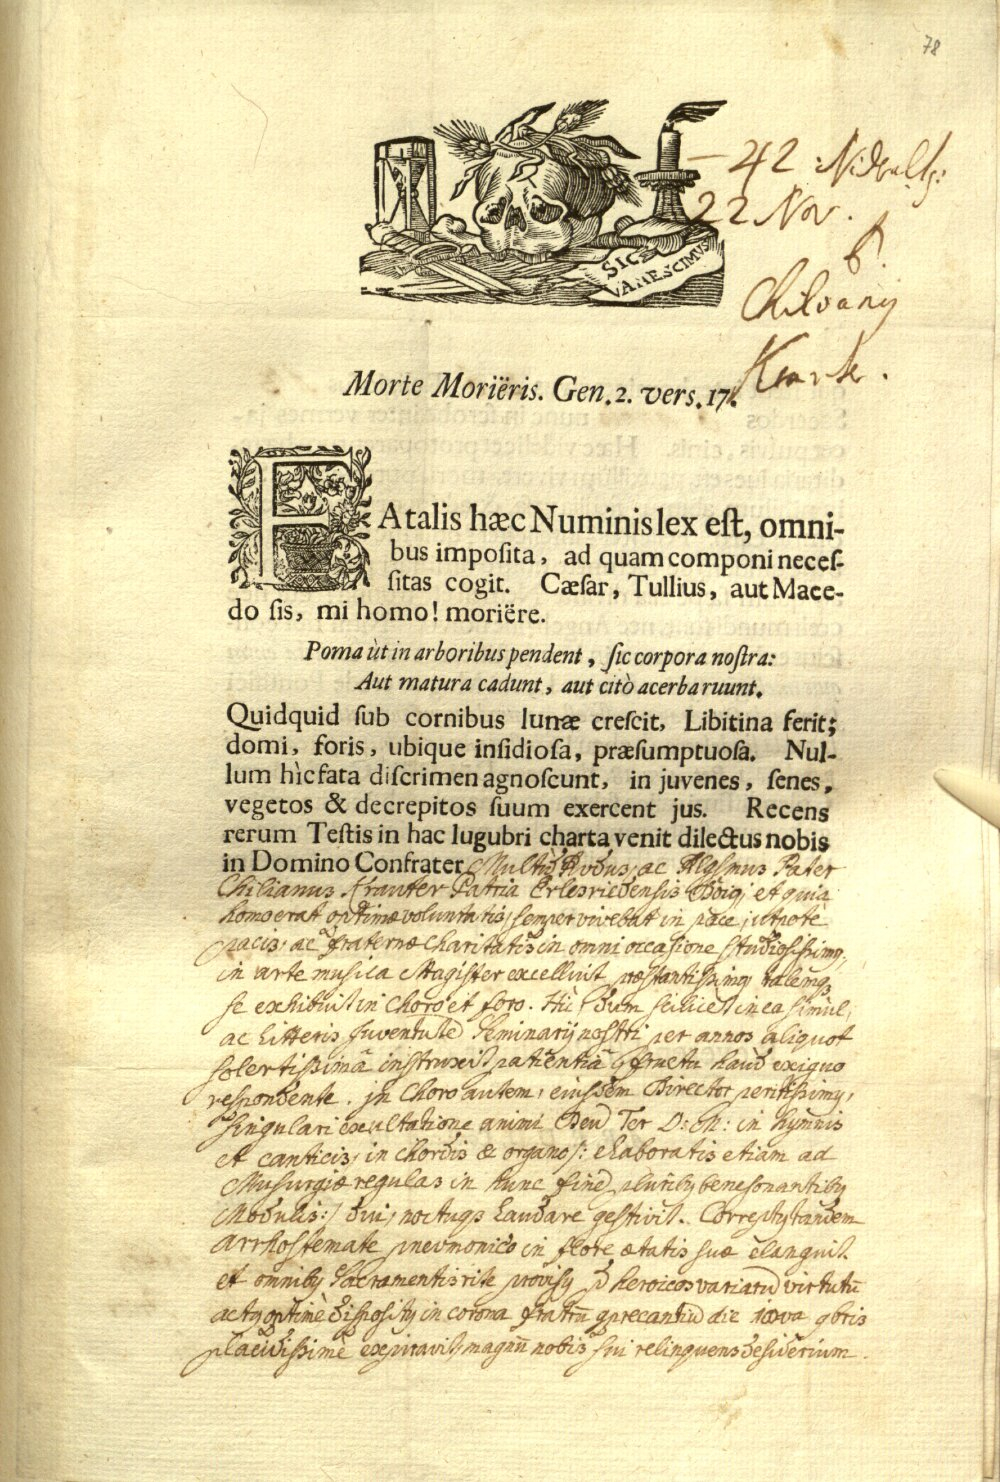 78
– 42 Nidralt:
22 Nov.
P.
Chiloany
SIC
VANESCIMUS
Morte Moriëris. Gen. 2. vers. 17.
FAtalis hæc Numinis lex est, omni-
bus imposita, ad quam componi neces-
sitas cogit. Cæsar, Tullius, aut Mace-
do sis, mi homo! moriëre.
Poma ùt in arboribus pendent, sic corpora nostra:
Aut matura cadunt, aut citò acerba ruunt.
Quidquid sub cornibus lunæ crescit, Libitina ferit;
domi, foris, ubique insidiosa, præsumptuosa. Nul-
lum hìc fata discrimen agnoscunt, in juvenes, senes,
vegetos & decrepitos suum exercent jus. Recens
rerum Testis in hac lugubri charta venit dilectus nobis
in Domino Confrater Multũ Rvdus, ac Rlgsmus Pater
Chilianus Patria et quia
homo erat optimæ voluntatis, semper vivebat in pace, utpote
pacis, ac fraternæ charitatis in omni occasione studiosissimq,
in arte musica Magister excelluit præstantissimq, talemq;
se exhibuit in Choro et foro. Hic dum scilicet in ea simul,
ac Litteris Juventutẽ Seminarij nostri per annos aliquot
solertissimã instruxit patientiã fructu haud exiguo
respondente. in Choro autem, eiusdem Director peritissimq,
singulari exultatione animi Deũ Ter O: M: in hymnis
et canticis, in chordis & organo /: elaboratis etiam ad
Musurgiæ regulas in hunc finẽ pluribq bene sonantibq
Modulis :/ diu, noctuqs Laudare gestivit. Correptq tandem
arrhostemate pnevmonico in flore ætatis suæ elanguit
et omnibq Sacramentis rite provisq heroicos variarũ virtutũ
actq optimè dispositq in corona fratrũ qprecantiũ die 10va 9bris
placidissimè expiravit, magnũ nobis sui relinquens desiderium.